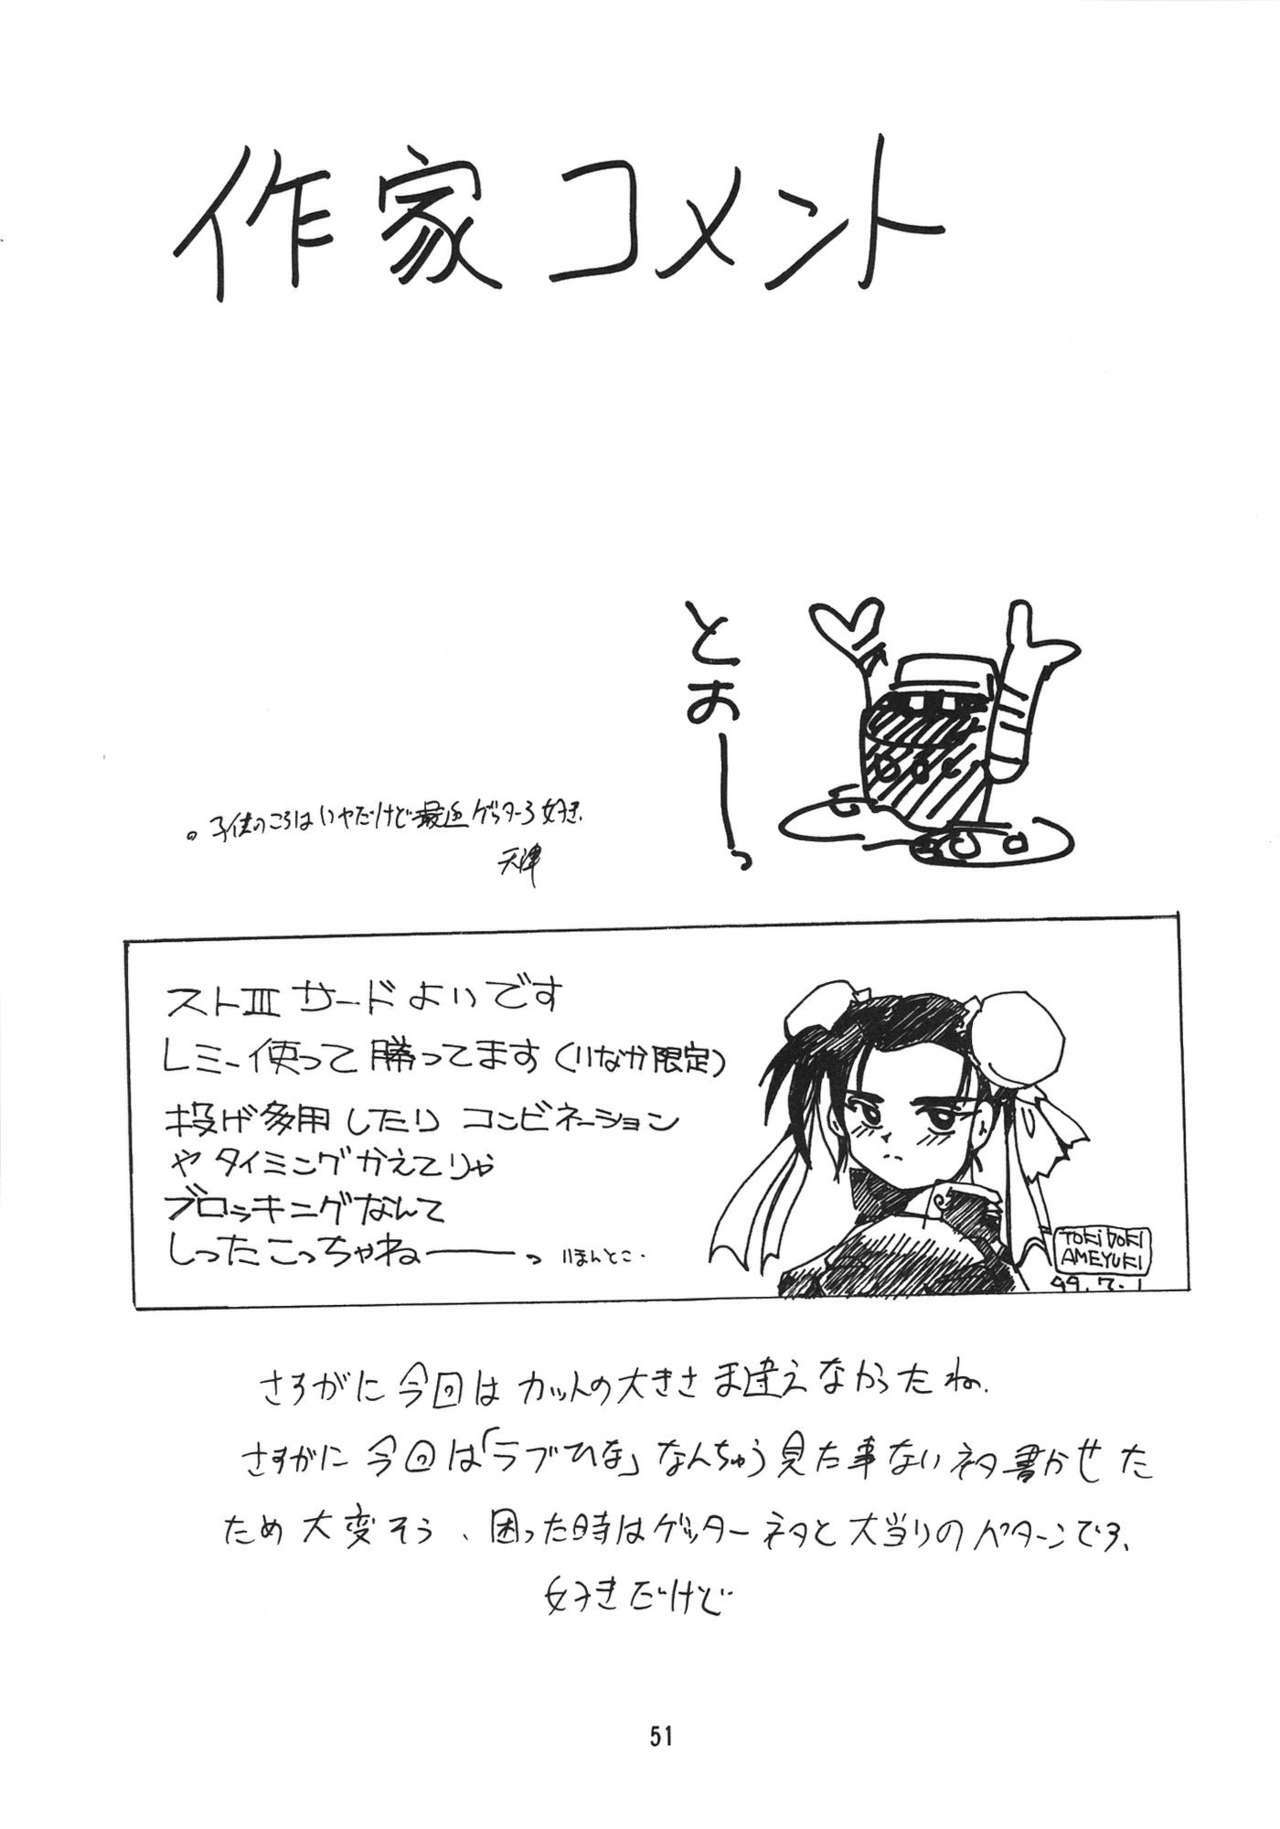 作家コメント
とおーっ
。子供のころはいやだけど最近ゲッター3好き.
天津
ストIII サードよいです
レミー使って勝ってます(いなか限定)
投げ多用したり コンビネーション
や タイミングかえてりゃ
ブロッキングなんて
しったこっちゃねーーっ
TOKiDOKi
AMEYUKI
99.7.1
さすがに今回はカットの大きさま違えなかったね.
さすがに今回は「ラブひな」なんちゅう見た事ないネタ書かせた
ため大変そう、困った時はゲッターネタと大当りのパターンです、
好きだけど
51